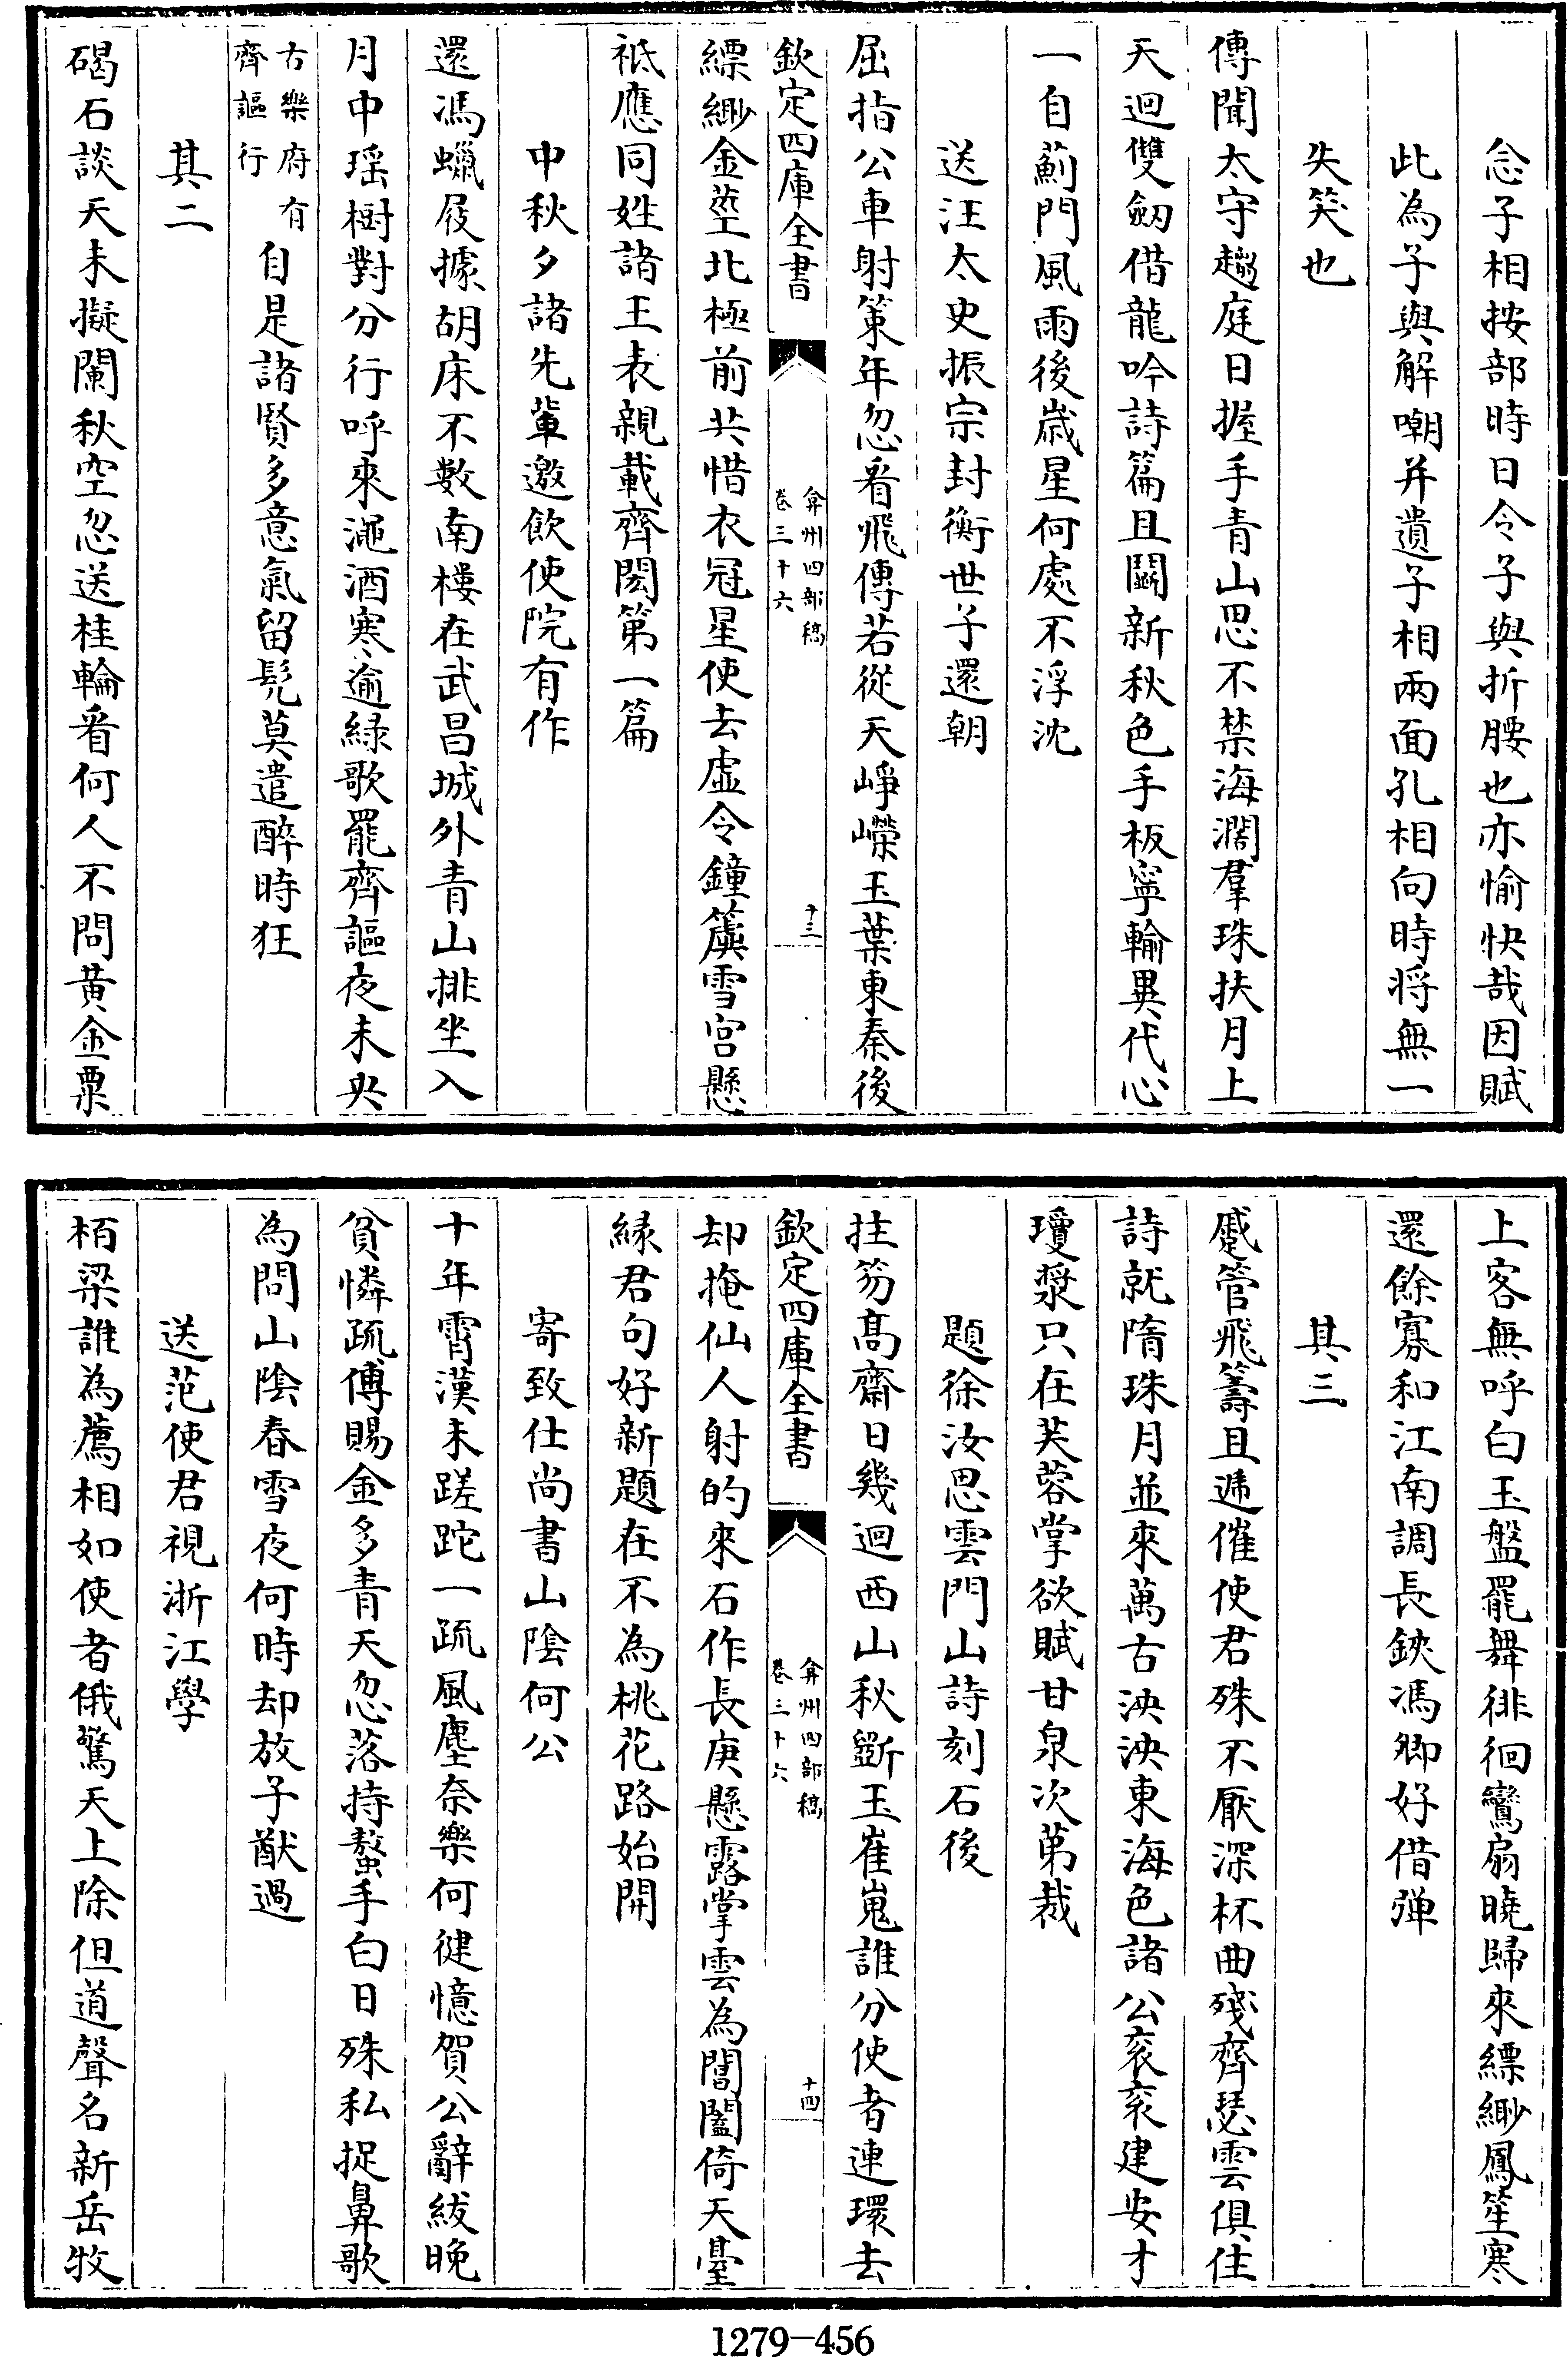 念子相按部時日令子與折腰也亦愉快哉因賦
此為子與解嘲并遺子相兩面孔相向時将無一
失笑也
傳聞太守趨庭日握手青山思不禁海濶羣珠扶月上
天迴雙劒借龍吟詩篇且鬭新秋色手板寜輸異代心
一自薊門風雨後嵗星何處不浮沈
送汪太史振宗封衡世子還朝
屈指公車射策年忽看飛傳若從天崢嶸玉葉東秦後
欽定四庫全書
弇州四部稿
卷三十六
十三
縹緲金莖北極前共惜衣冠星使去虛令鐘簴雪宮懸
祗應同姓諸王表親載齊閎第一篇
中秋夕諸先輩邀飲使院有作
還馮蠟屐據胡床不數南樓在武昌城外青山排坐入
月中瑶樹對分行呼來澠酒寒逾緑歌罷齊謳夜未央
古樂府有
齊謳行
自是諸賢多意氣留髡莫遣醉時狂
其二
碣石談天未擬闌秋空忽送桂輪看何人不問黄金粟
上客無呼白玉盤罷舞徘徊鸞扇曉歸來縹緲鳳笙寒
還餘寡和江南調長鋏馮卿好借彈
其三
蹙管飛籌且遞催使君殊不厭深杯曲殘齊瑟雲俱住
詩就隋珠月並來萬古泱泱東海色諸公衮衮建安才
瓊漿只在芙蓉掌欲賦甘泉次第裁
題徐汝思雲門山詩刻石後
拄笏髙齋日幾迴西山秋斷玉崔嵬誰分使者連環去
欽定四庫全書
弇州四部稿
卷三十六
十四
却掩仙人射的來石作長庚懸露掌雲為閶闔倚天臺
緑君句好新題在不為桃花路始開
寄致仕尚書山陰何公
十年霄漢未蹉跎一疏風塵奈樂何健憶賀公辭紱晚
貧憐疏傅賜金多青天忽落持螯手白日殊私捉鼻歌
為問山陰春雪夜何時却放子猷過
送范使君視浙江學
栢梁誰為薦相如使者俄驚天上除但道聲名新岳牧
1279-456